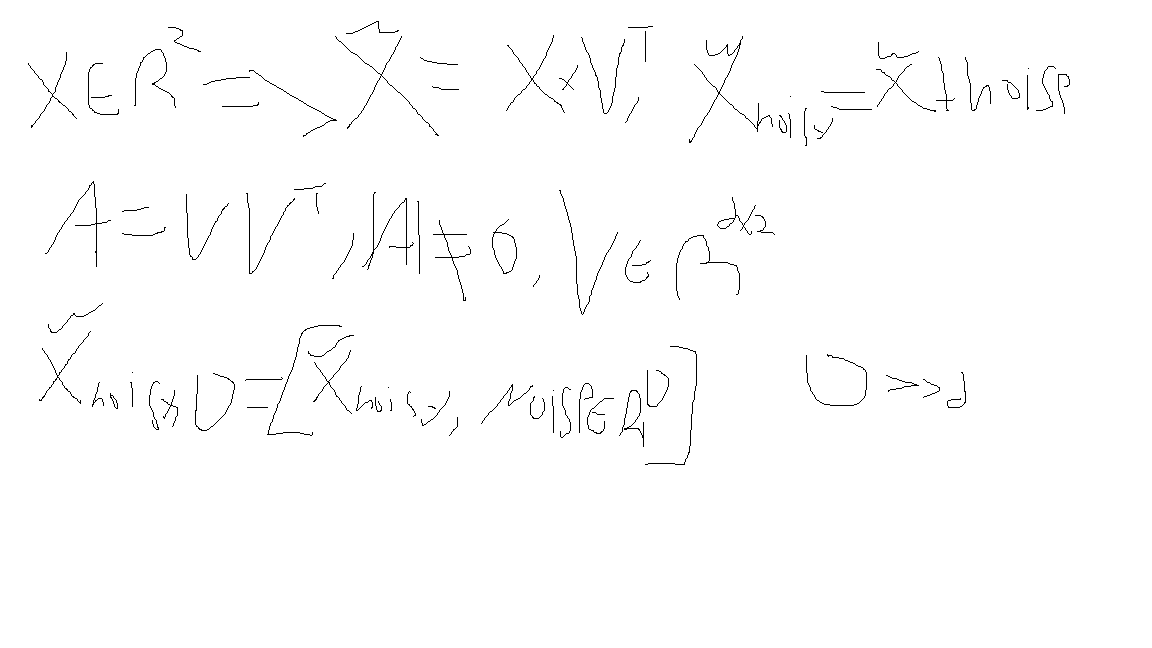 X ∈ R² ⇒ X̃ = X × Vᵀ, X̃_noisy = X̃ + noise
A = V Vᵀ, |A| ≠ 0, V ∈ R^{d×2}
X̃_noisy D = [X̃_noisy, noise ∈ R^D] D >> d